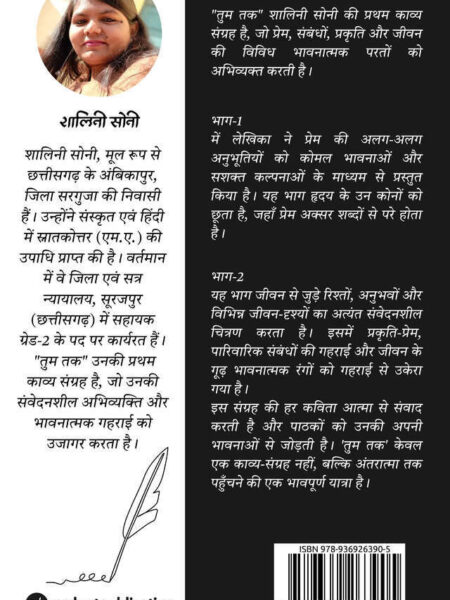 शालिनी सोनी
शालिनी सोनी, मूल रूप से
छत्तीसगढ़ के अंबिकापुर,
जिला सरगुजा की निवासी
हैं। उन्होंने संस्कृत एवं हिंदी
में स्नातकोत्तर (एम.ए.) की
उपाधि प्राप्त की है। वर्तमान
में वे जिला एवं सत्र
न्यायालय, सूरजपुर
(छत्तीसगढ़) में सहायक
ग्रेड-2 के पद पर कार्यरत हैं।
"तुम तक" उनकी प्रथम
काव्य संग्रह है, जो उनकी
संवेदनशील अभिव्यक्ति और
भावनात्मक गहराई को
उजागर करता है।
"तुम तक" शालिनी सोनी की प्रथम काव्य
संग्रह है, जो प्रेम, संबंधों, प्रकृति और जीवन
की विविध भावनात्मक परतों को
अभिव्यक्त करती है।
भाग-1
में लेखिका ने प्रेम की अलग-अलग
अनुभूतियों को कोमल भावनाओं और
सशक्त कल्पनाओं के माध्यम से प्रस्तुत
किया है। यह भाग हृदय के उन कोनों को
छूता है, जहाँ प्रेम अक्सर शब्दों से परे होता
है।
भाग-2
यह भाग जीवन से जुड़े रिश्तों, अनुभवों और
विभिन्न जीवन-दृश्यों का अत्यंत संवेदनशील
चित्रण करता है। इसमें प्रकृति-प्रेम,
पारिवारिक संबंधों की गहराई और जीवन के
गूढ़ भावनात्मक रंगों को गहराई से उकेरा
गया है।
इस संग्रह की हर कविता आत्मा से संवाद
करती है और पाठकों को उनकी अपनी
भावनाओं से जोड़ती है। 'तुम तक' केवल
एक काव्य-संग्रह नहीं, बल्कि अंतरात्मा तक
पहुँचने की एक भावपूर्ण यात्रा है।
ISBN 978-936926390-5